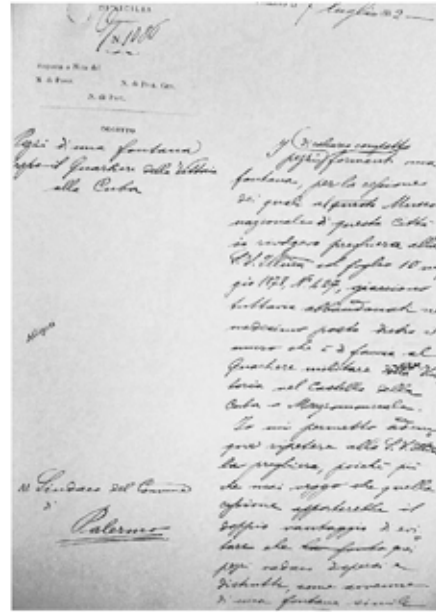 MUNICIPALE
N. 1086
Risposta a Nota del
N. di Prot. Gen.
N. di Part.
OGGETTO
Pezzi di una fontana
presso il Quartiere della Vittoria
alla Cuba
Allegati
Al Sindaco del Comune
di
Palermo
luglio
pezzi formanti una
fontana, per la cessione
dei quali a questo Museo
nazionale di questa Città
io rivolgeva preghiera alla
S.V. Illma col foglio 10
gio 1878, N. 427, giacciono
tuttavia abbandonati
medesimo posto dietro il
muro che è di fianco al
Quartiere militare della
toria nel Castello della
Cuba o
Io mi permetto
que ripetere alla S.V. Illma
la preghiera, poiché più
che mai veggo che quella
cessione apporterebbe il
doppio vantaggio di evi
tare che
pezzi vadano dispersi e
distrutti, come avvenne
di una fontana simile